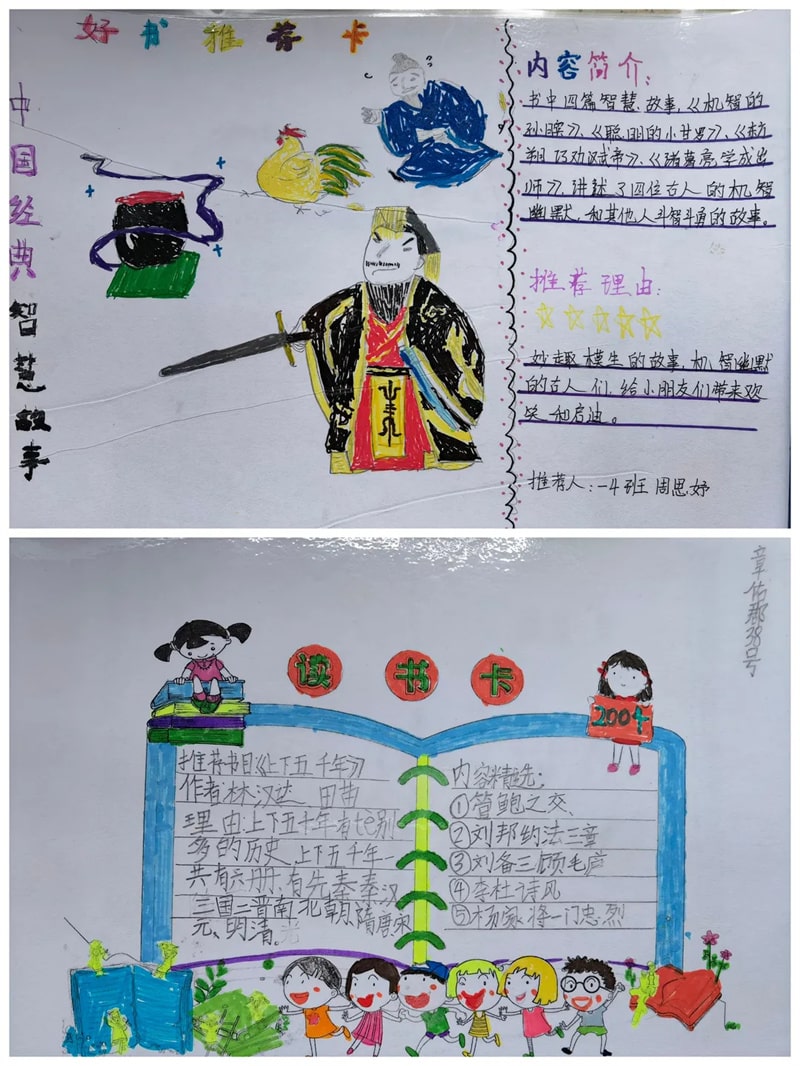 好书推荐卡
中国经典智慧故事
内容简介：
书中四篇智慧故事，《机智的
孙晖》、《聪明的小甘罗》、《东方
朔巧劝汉武帝》、《诸葛亮学成出
师》，讲述了四位古人的机智
幽默，和其他人斗智斗勇的故事。
推荐理由：
妙趣横生的故事，机智幽默
的古人们，给小朋友们带来欢
笑和启迪。
推荐人：一4班 周思妤
章佑郡38号
读书卡
200个
推荐书目《上下五千年》
作者林汉达 田
理由：上下五千年有te别
多的历史，上下五千年一
共有六册，有先秦秦汉
三国二晋南北朝隋唐宋
元、明清。
内容精选：
①管鲍之交、
②刘邦约法三章
③刘备三顾毛庐
④李杜诗风
⑤杨家将一门忠烈